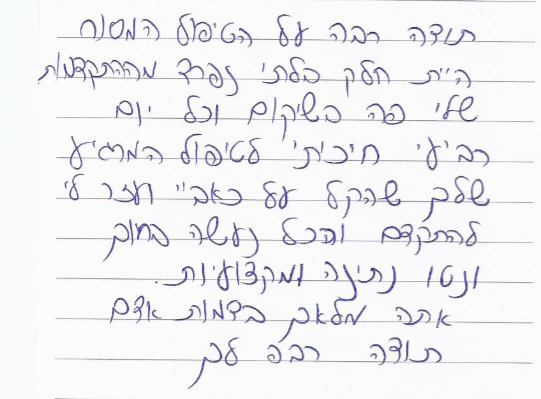 תודה רבה על הטיפול המסור
היית חלק בלתי נפרד מההתקדמות
שלי פה בשיקום וכל יום
רביעי חיכיתי לטיפול המרגיע
שלך שהקל על כאביי ועזר לי
להתקדם והכל נעשה בחום
ונטו נתינה ומקצועיות.
אתה מלאך בדמות אדם
תודה רבה לך